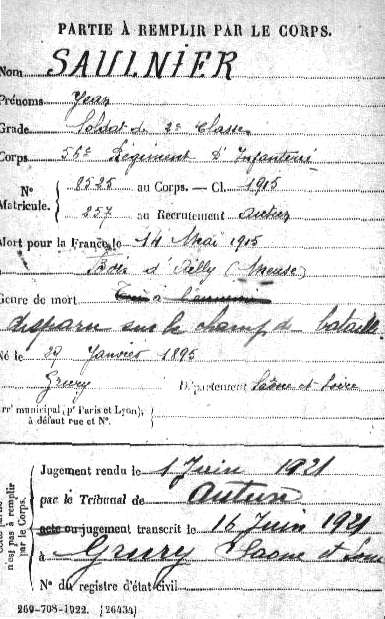 PARTIE À REMPLIR PAR LE CORPS.
Nom SAULNIER
Prénoms Jean
Grade Soldat de 2e Classe
Corps 56e Régiment d'Infanterie
N° Matricule. { 8525 au Corps. — Cl. 1915
257 au Recrutement Autun
Mort pour la France le 14 Mai 1915
Bois d'Ailly (Meuse)
Genre de mort Tué à l'ennemi
disparu sur le champ de bataille
Né le 29 Janvier 1895
Grury Département Saône et Loire
Arrt municipal (pr Paris et Lyon),
à défaut rue et N°.
n'est pas à remplir
par le Corps.
Jugement rendu le 1 Juin 1921
par le Tribunal de Autun
acte ou jugement transcrit le 16 Juin 1921
à Grury Saone et Loire
N° du registre d'état civil
269-708-1922. [26434]